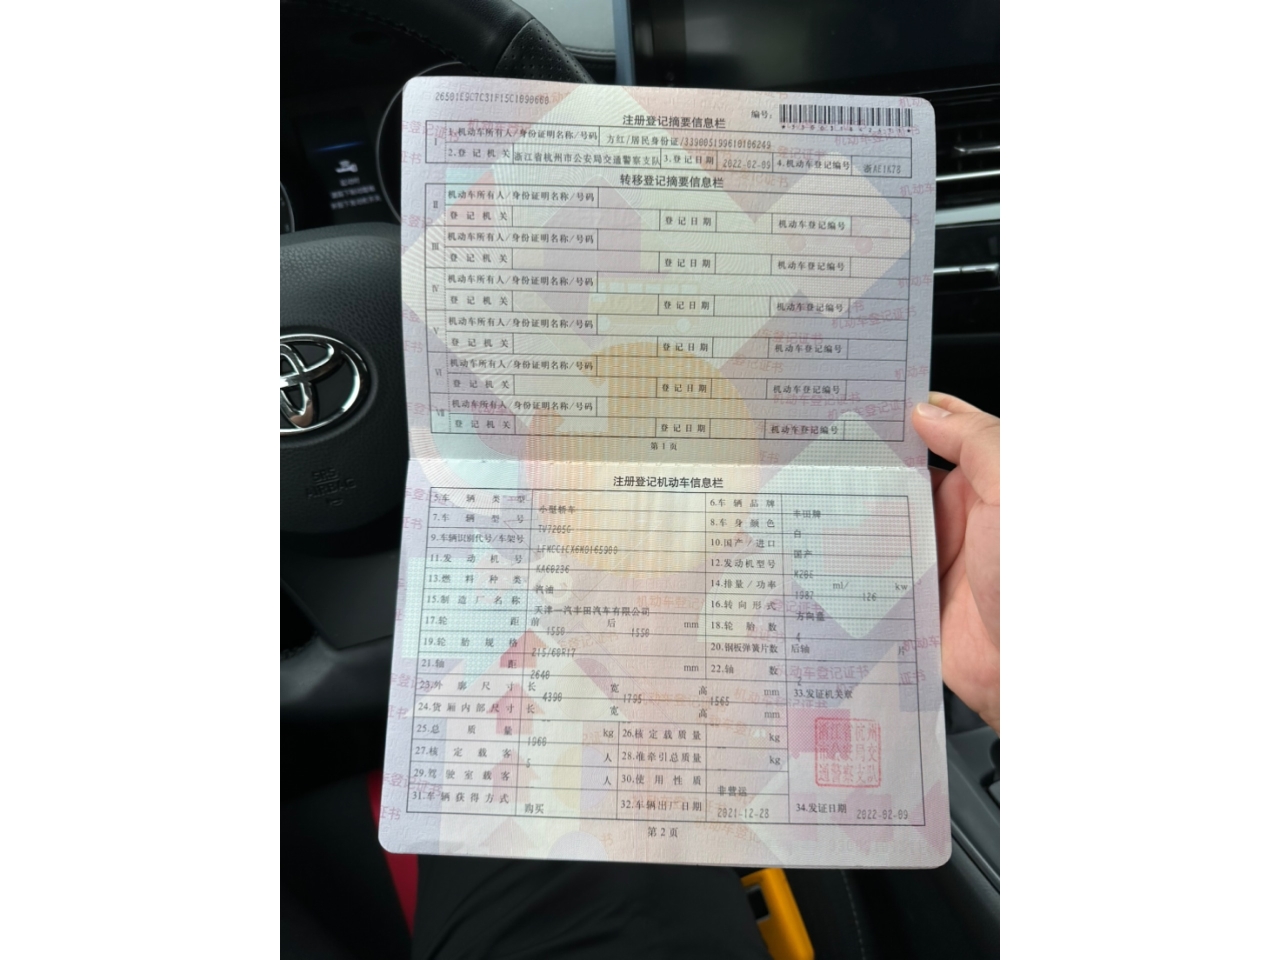 注册登记摘要信息栏
编号:
I 1.机动车所有人/身份证明名称/号码 方红/居民身份证/
2.登记机关 浙江省杭州市公安局交通警察支队 3.登记日期 2022-02-09 4.机动车登记编号
转移登记摘要信息栏
II 机动车所有人/身份证明名称/号码
登记机关 登记日期 机动车登记编号
III 机动车所有人/身份证明名称/号码
登记机关 登记日期 机动车登记编号
IV 机动车所有人/身份证明名称/号码
登记机关 登记日期 机动车登记编号
V 机动车所有人/身份证明名称/号码
登记机关 登记日期 机动车登记编号
VI 机动车所有人/身份证明名称/号码
登记机关 登记日期 机动车登记编号
VII 机动车所有人/身份证明名称/号码
登记机关 登记日期 机动车登记编号
第1页
注册登记机动车信息栏
5.车辆类型 小型轿车 6.车辆品牌 丰田牌
7.车辆型号 8.车身颜色 白
9.车辆识别代号/车架号 10.国产/进口 国产
11.发动机号 12.发动机型号
13.燃料种类 汽油 14.排量/功率 1987 ml/ 126 kw
15.制造厂名称 天津一汽丰田汽车有限公司 16.转向形式 方向盘
17.轮距 前 1550 后 1550 mm 18.轮胎数 4
19.轮胎规格 215/60R17 20.钢板弹簧片数 后轴 片
21.轴距 2640 mm 22.轴数 2
23.外廓尺寸 长 4390 宽 1795 高 1565 mm 33.发证机关章
24.货厢内部尺寸 长 宽 高 mm
25.总质量 1960 kg 26.核定载质量 -- kg
27.核定载客 5 人 28.准牵引总质量 -- kg
29.驾驶室载客 -- 人 30.使用性质 非营运
31.车辆获得方式 购买 32.车辆出厂日期 2021-12-28 34.发证日期 2022-02-09
第2页